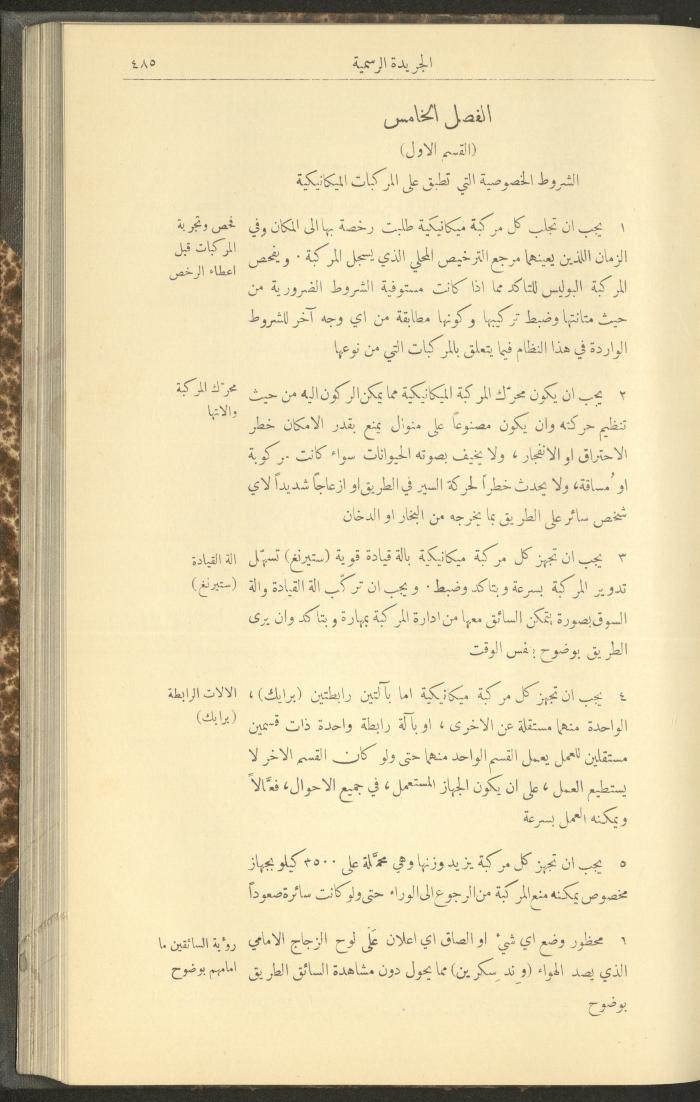 الجريدة الرسمية ٤٨٥
الفصل الخامس
(القسم الاول)
الشروط الخصوصية التي تطبق على المركبات الميكانيكية
١ يجب ان تجلب كل مركبة ميكانيكية طلبت رخصة بها الى المكان وفي
الزمان اللذين يعينهما مرجع الترخيص المحلي الذي يسجل المركبة . ويفحص
المركبة البوليس للتاكد مما اذا كانت مستوفية الشروط الضرورية من
حيث متانتها وضبط تركيبها وكونها مطابقة من اي وجه آخر للشروط
الواردة في هذا النظام فيما يتعلق بالمركبات التي من نوعها
فحص وتجربة
المركبات قبل
اعطاء الرخص
٢ يجب ان يكون محرّك المركبة الميكانيكية مما يمكن الركون اليه من حيث
تنظيم حركته وان يكون مصنوعاً على منوال يمنع بقدر الامكان خطر
الاحتراق او الانفجار ، ولا يخيف بصوته الحيوانات سواء كانت مركوبة
او مُساقة، ولا يحدث خطراً لحركة السير في الطريق او ازعاجاً شديداً لاي
شخص سائر على الطريق بما يخرجه من البخار او الدخان
محرّك المركبة
والاتها
٣ يجب ان تجهز كل مركبة ميكانيكية بالة قيادة قوية (ستيرنغ) تسهّل
تدوير المركبة بسرعة وبتاكد وضبط . ويجب ان تركّب الة القيادة والة
السوق بصورة يتمكن السائق معها من ادارة المركبة بمهارة وبتاكد وان يرى
الطريق بوضوح بنفس الوقت
الة القيادة
(ستيرنغ)
٤ يجب ان تجهز كل مركبة ميكانيكية اما بآلتين رابطتين (برايك) ،
الواحدة منهما مستقلة عن الاخرى ، او بآلة رابطة واحدة ذات قسمين
مستقلين للعمل يعمل القسم الواحد منهما حتى ولو كان القسم الاخر لا
يستطيع العمل ، على ان يكون الجهاز المستعمل ، في جميع الاحوال، فعَّالاً
ويمكنه العمل بسرعة
الالات الرابطة
(برايك)
٥ يجب ان تجهز كل مركبة يزيد وزنها وهي محمَّلة على ٣٥٠٠ كيلو بجهاز
مخصوص يمكنه منع المركبة من الرجوع الى الوراء حتى ولو كانت سائرة صعوداً
٦ محظور وضع اي شيء او الصاق اي اعلان عَلَى لوح الزجاج الامامي
الذي يصد الهواء (وِند سِكرين) مما يحول دون مشاهدة السائق الطريق
بوضوح
رؤية السائقين ما
امامهم بوضوح